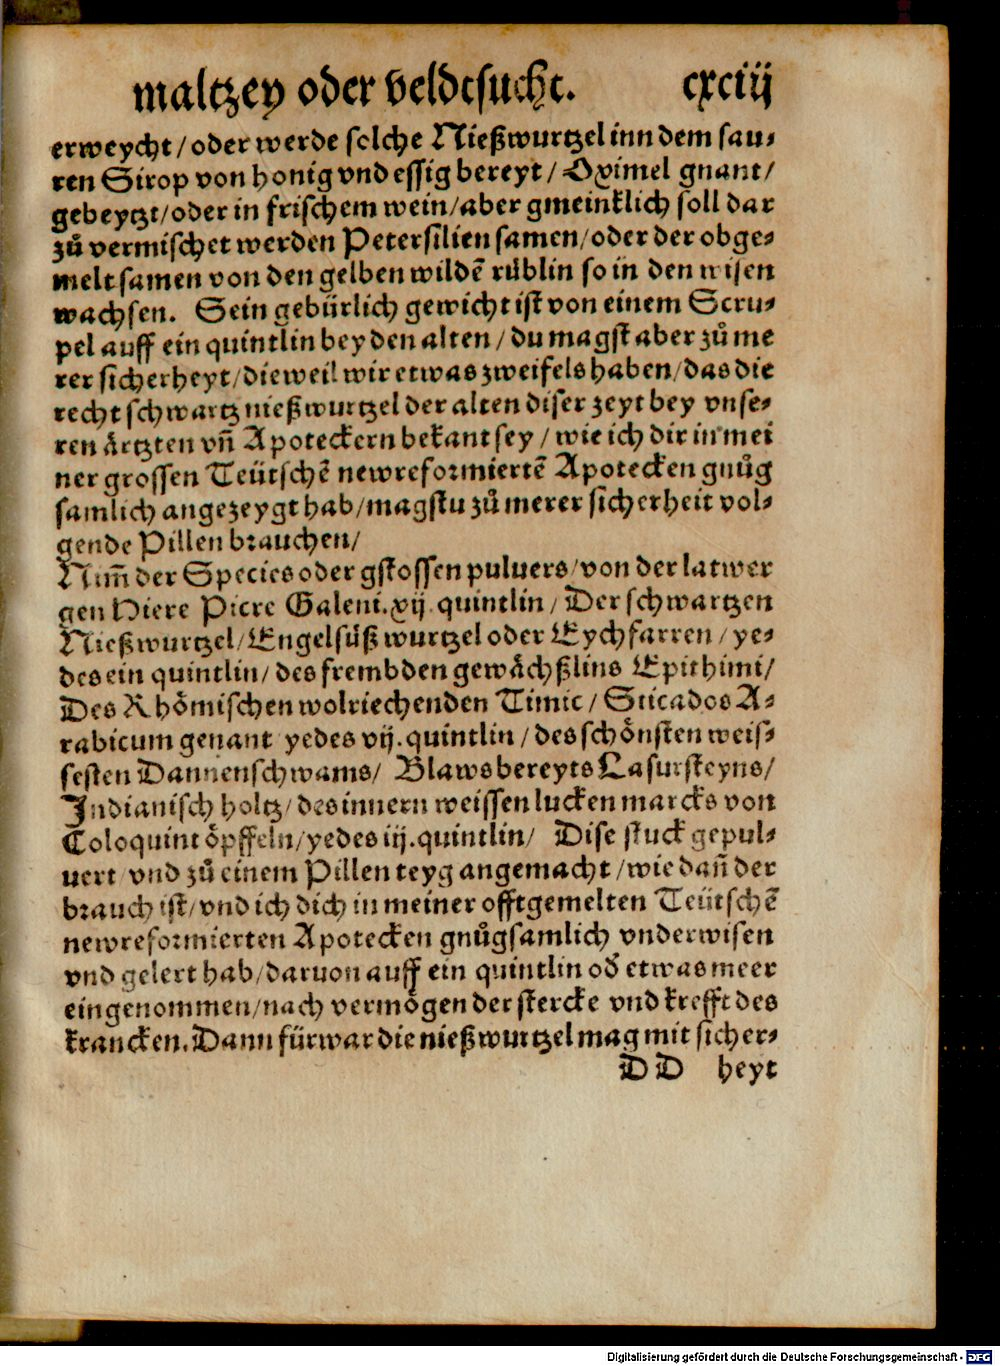 maltzey oder veldtsucht. cxciij
erweycht / oder werde solche Nießwurtzel inn dem sau⸗
ren Sirop von honig vnd essig bereyt / Oximel gnant /
gebeytzt / oder in frischem wein / aber gmeinklich soll dar
zů vermischet werden Petersilien samen / oder der obge⸗
melt samen von den gelben wildē rüblin so in den wisen
wachsen. Sein gebürlich gewicht ist von einem Scru⸗
pel auff ein quintlin bey den alten / du magst aber zů me
rer sicherheyt / dieweil wir etwas zweifels haben / das die
recht schwartz nießwurtzel der alten diser zeyt bey vnse⸗
ren ärtzten vñ Apoteckern bekant sey / wie ich dir in mei
ner grossen Teütschē newreformiertē Apotecken gnůg
samlich angezeygt hab / magstu zů merer sicherheit vol⸗
gende Pillen brauchen /
Nim̃ der Species oder gstossen puluers / von der latwer
gen Hiere Picre Galeni. xij. quintlin / Der schwartzen
Nießwurtzel / Engelsüß wurtzel oder Eychfarren / ye⸗
des ein quintlin / des frembden gewächßlins Epithimi /
Des Rhömischen wolriechenden Timic / Sticados A⸗
rabicum genant yedes vij. quintlin / des schönsten weis⸗
sesten Dannenschwams / Blaws bereyts Lasursteyns /
Indianisch holtz / des innern weissen lucken marcks von
Coloquint öpffeln / yedes iij. quintlin / Dise stuck gepul⸗
uert / vnd zů einem Pillen teyg angemacht / wie dañ der
brauch ist / vnd ich dich in meiner offtgemelten Teütschē
newreformierten Apotecken gnůgsamlich vnderwisen
vnd gelert hab / daruon auff ein quintlin od̕ etwas meer
eingenommen / nach vermögen der stercke vnd krefft des
krancken. Dann fürwar die nießwurtzel mag mit sicher⸗
D D heyt
Digitalisierung gefördert durch die Deutsche Forschungsgemeinschaft - DFG